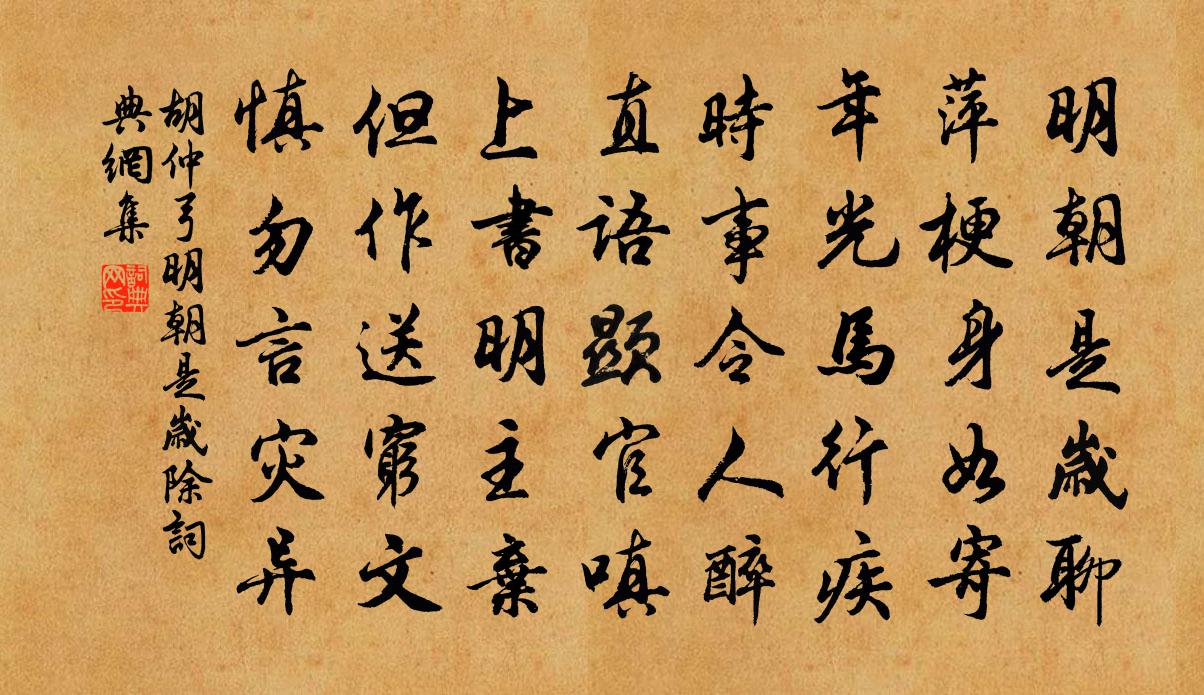 明朝是歲聊
萍梗身如寄
年光馬行疾
時事令人醉
直語顯官嗔
上書明主棄
但作送窮文
慎勿言灾异
胡仲弓明朝是歲除詞
典網集
詞典网印